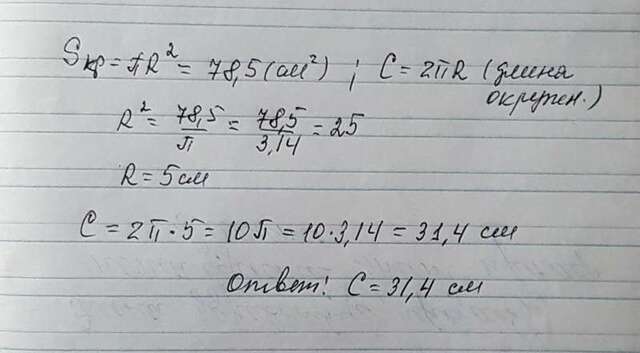 Sкр = πR² = 78,5 (см²) ; C = 2πR (длина
окружн.)
R² = 78,5/π = 78,5/3,14 = 25
R = 5 см
C = 2π · 5 = 10π = 10 · 3,14 = 31,4 см
Ответ: C = 31,4 см